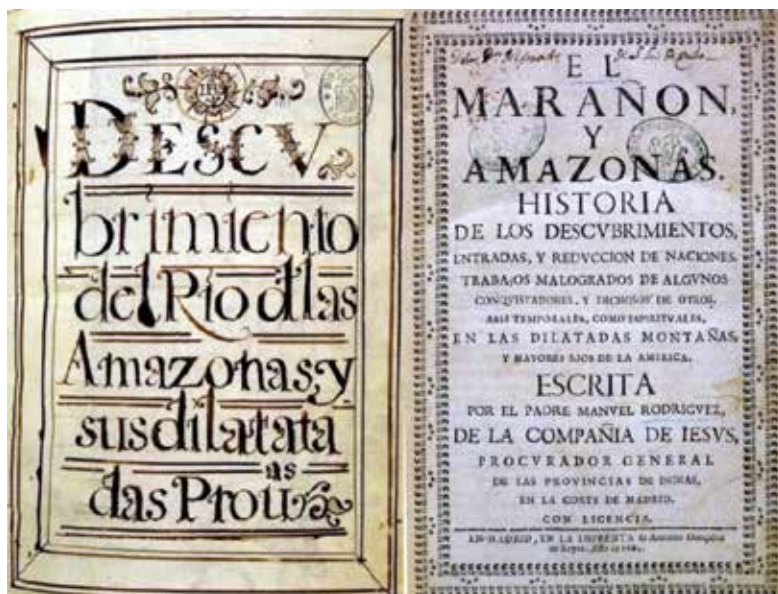 DESCV.
brimiento
del Rio dlas
Amazonas, y
sus dilatata
das Prouas
EL
MARAÑON,
Y
AMAZONAS.
HISTORIA
DE LOS DESCVBRIMIENTOS,
ENTRADAS, Y REDVCCION DE NACIONES.
TRABAJOS MALOGRADOS DE ALGVNOS
CONQVISTADORES, Y DICHOSOS DE OTROS,
ASSI TEMPORALES, COMO ESPIRITVALES,
EN LAS DILATADAS MONTAÑAS,
Y MAYORES RIOS DE LA AMERICA.
ESCRITA
POR EL PADRE MANVEL RODRIGVEZ,
DE LA COMPAÑIA DE IESVS,
PROCVRADOR GENERAL
DE LAS PROVINCIAS DE INDIAS,
EN LA CORTE DE MADRID.
CON LICENCIA.
EN MADRID, EN LA IMPRENTA de Antonio Gonçalez
de Reyes. Año de